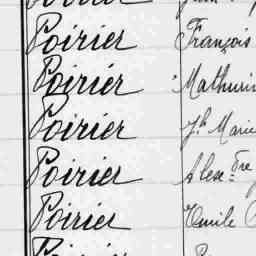 Poirier François
Poirier Mathurin
Poirier Jh Marie
Poirier Alexdre
Poirier Emile
Poirier